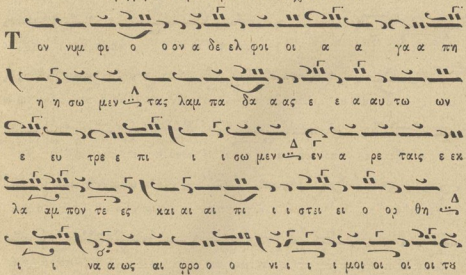 Τ ον νυμ φι ο ο ον α δε ελ φοι οι α α γα α πη
η η σω μεν τας λαμ πα δα α ας ε ε α αυ τω ων
ε ευ τρε ε πι ι ι σω μεν Δ εν α ρε ταις ε εκ
λα αμ πον τε ες και αι αι πι ι ι στει ει ο ορ θη Δ
ι ι να α ως αι φρο ο ο νι ι ι ι μοι οι οι οι του